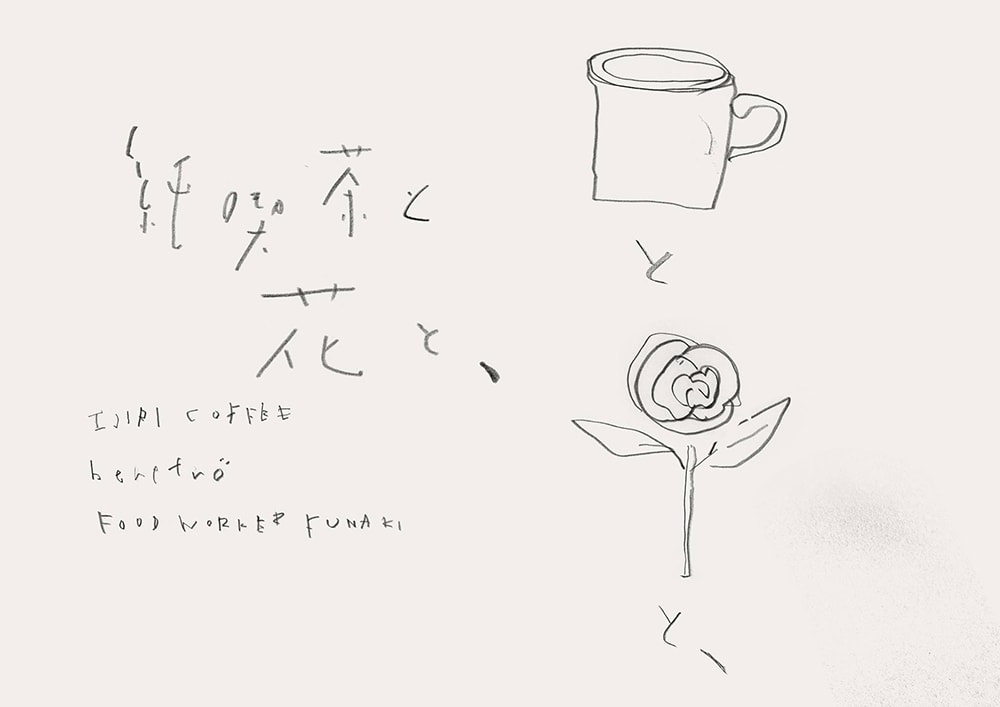 純喫茶と
花と、
IJIRI COFFEE
benströ
FOOD WORKER FUNAKI
と
と、